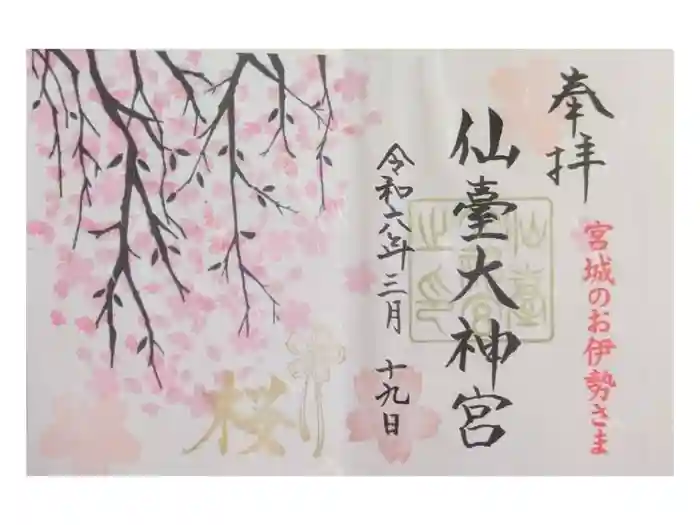 奉拝
宮城のお伊勢さま
仙臺大神宮
令和六年三月
十九日
桜